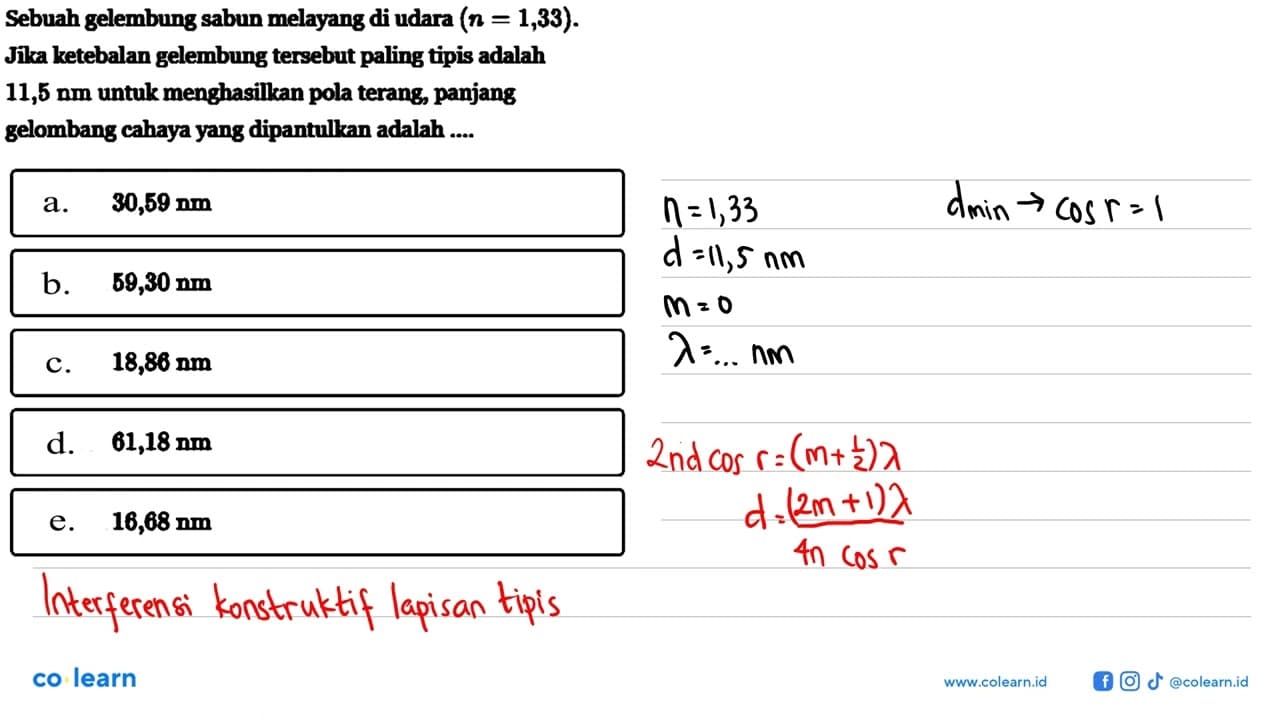 Sebuah gelembung sabun melayang di udara (n = 1,33).
Jika ketebalan gelembung tersebut paling tipis adalah
11,5 nm untuk menghasilkan pola terang, panjang
gelombang cahaya yang dipantulkan adalah ....
a. 30,59 nm
b. 59,30 nm
c. 18,86 nm
d. 61,18 nm
e. 16,68 nm
n = 1,33
d = 11,5 nm
m = 0
λ = ... nm
dmin → cos r = 1
2nd cos r = (m + 1/2) λ
d = (2m + 1) λ
4n cos r
Interferensi konstruktif lapisan tipis
co learn
www.colearn.id
@colearn.id